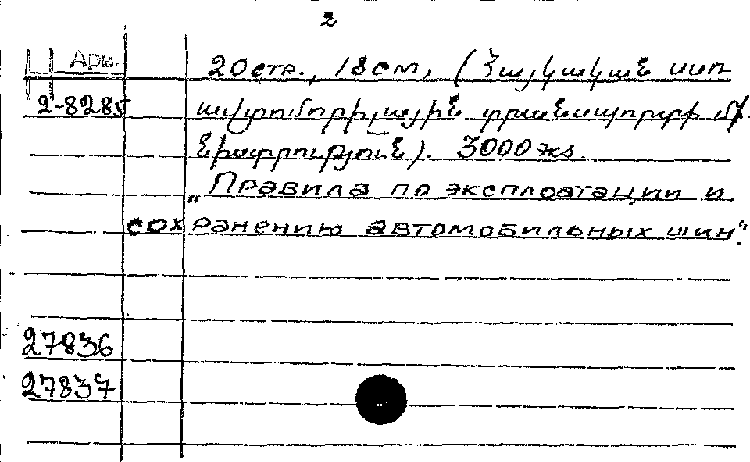 2
Арм. 20 стр., 18 см, (Հայկական ՍՍՌ
2-8285 ավտոմոբիլային տրանսպորտի մի-
նիստրություն). 3000 экз.
„Правила по эксплоатации и
сохранению автомобильных шин".
27836
27837